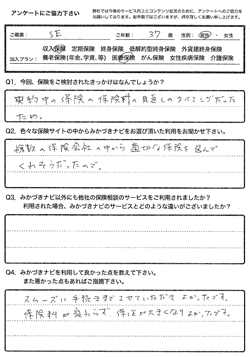 アンケートにご協力下さい
弊社では今後のサービス向上とコンテンツ拡充のために、アンケートへのご協力を
お願いしております。お手数ではございますが、何卒宜しくお願い申し上げます。
ご職業： SE ご年齢： 37 歳 性別： 男性 ・ 女性
加入プラン： 収入保障 定期保険 終身保険 低解約型終身保険 外貨建終身保険
養老保険(年金、学資、等) 医療保険 がん保険 女性疾病保険 介護保険
Q1、今回、保険をご検討されたきっかけはなんでしょうか？
契約中の保険の保険料の見直しのタイミングだった
ため。
Q2、色々な保険サイトの中からみかづきナビをお選び頂いた理由をお聞かせ下さい。
複数の保険会社の中から適切な保険を選んで
くれそうだったので。
Q3、みかづきナビ以外にも他社の保険相談のサービスをご利用されましたか？
利用された場合、みかづきナビのサービスとどのような違いがございましたか？
Q4、みかづきナビを利用して良かった点を教えて下さい。
また悪かった点もあればご指摘下さい。
スムーズに手続きさせていただきよかったです。
保険料が変わらず、保証が大きくなりよかったです。